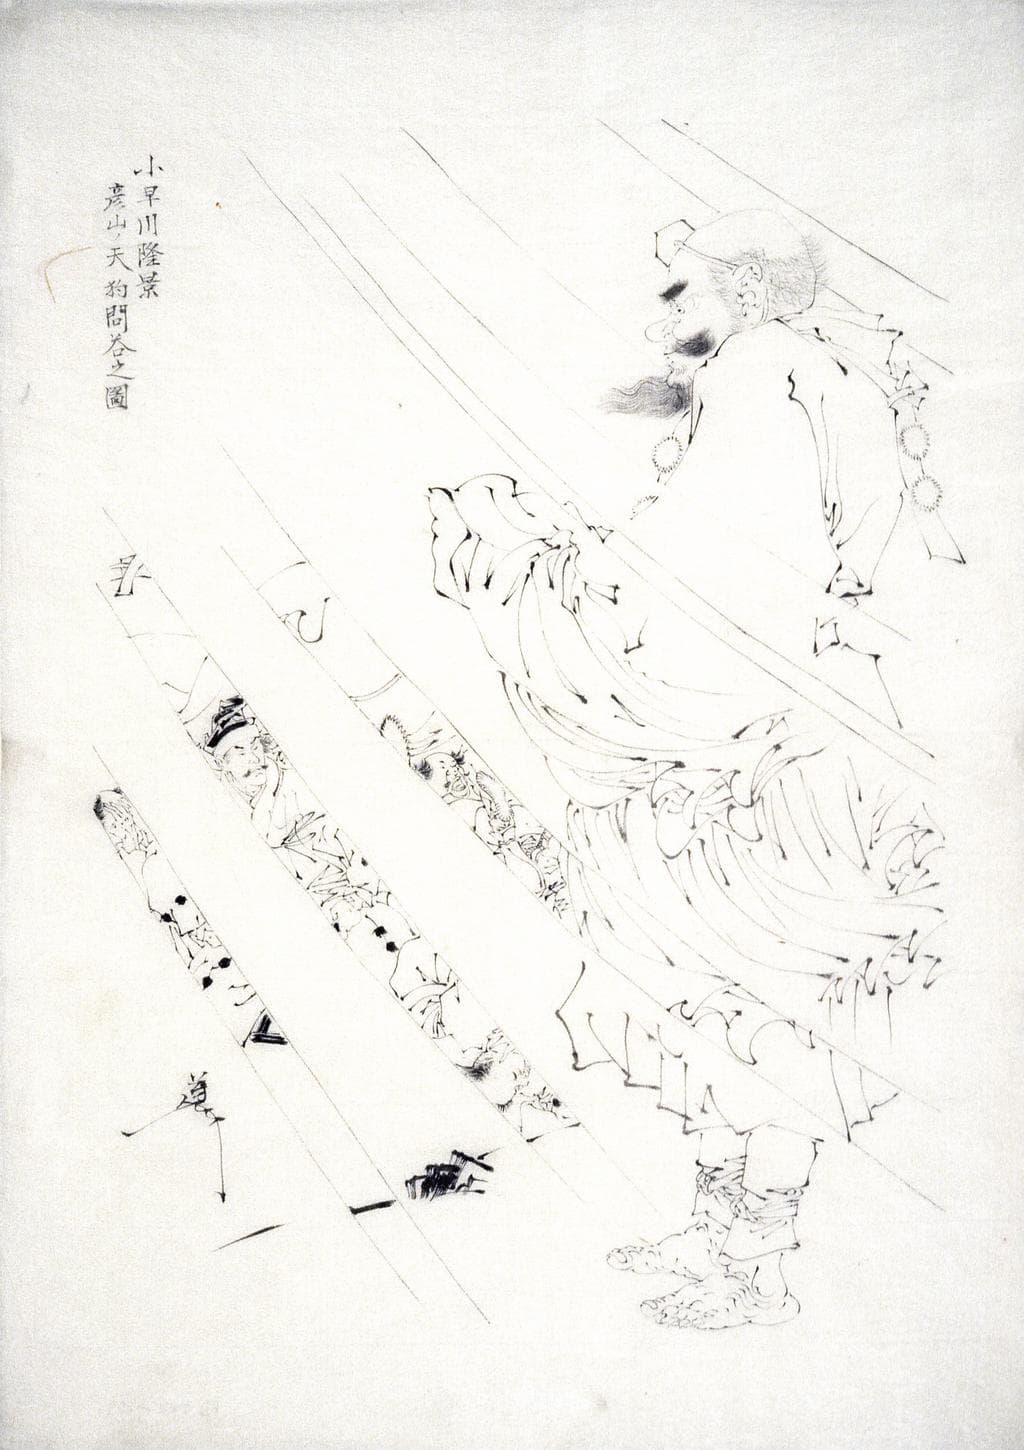 小早川隆景
彦山ノ天狗問答之圖